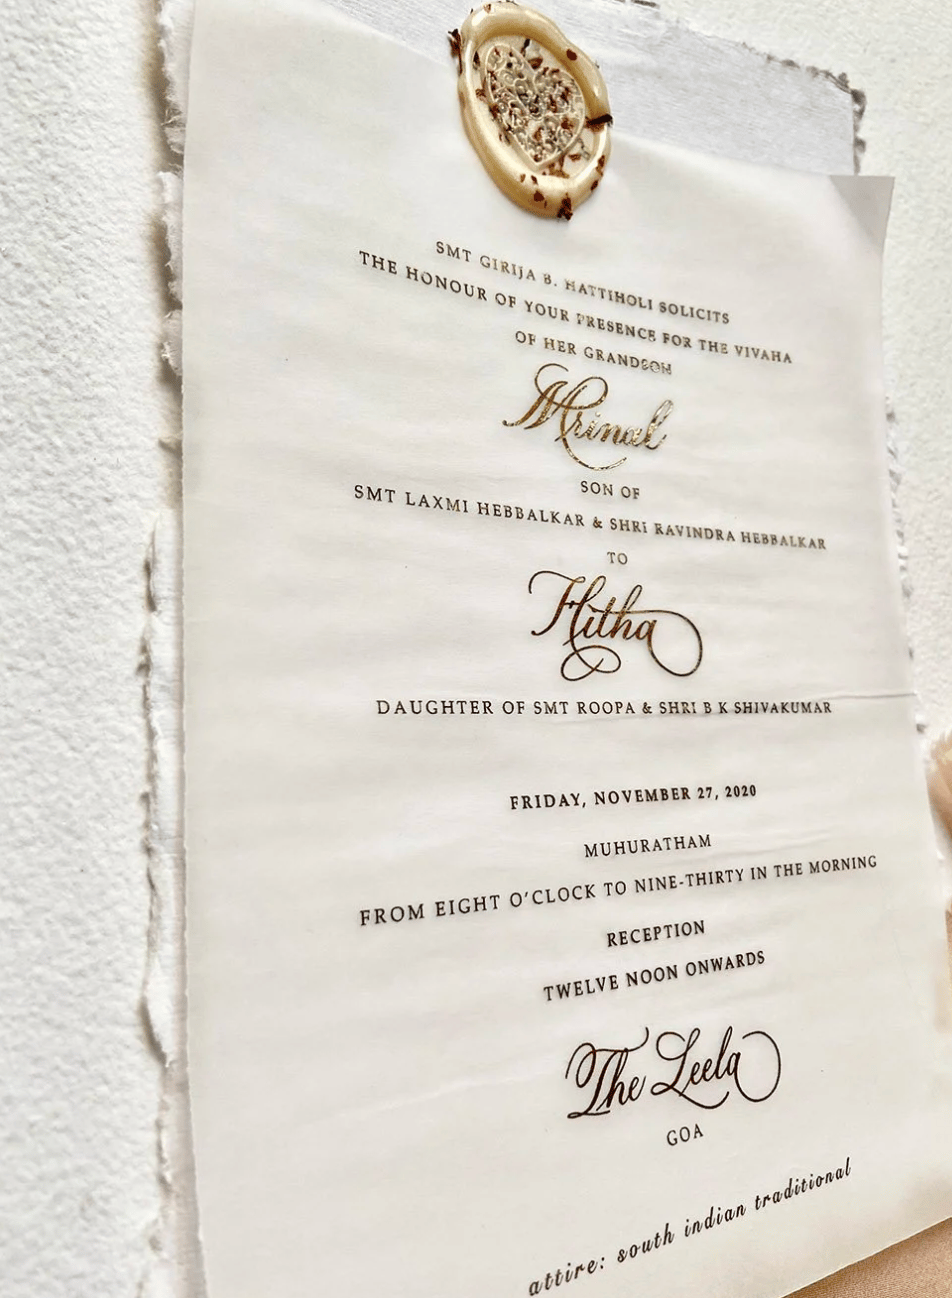 SMT GIRIJA B. HATTIHOLI SOLICITS
THE HONOUR OF YOUR PRESENCE FOR THE VIVAHA
OF HER GRANDSON
Mrinal
SON OF
SMT LAXMI HEBBALKAR & SHRI RAVINDRA HEBBALKAR
TO
Hitha
DAUGHTER OF SMT ROOPA & SHRI B K SHIVAKUMAR
FRIDAY, NOVEMBER 27, 2020
MUHURATHAM
FROM EIGHT O'CLOCK TO NINE-THIRTY IN THE MORNING
RECEPTION
TWELVE NOON ONWARDS
The Leela
GOA
attire: south indian traditional